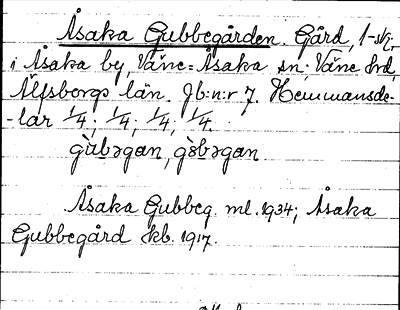 Åsaka Gubbegården. Gård, 1-stj.,
i Åsaka by, Väne=Åsaka sn. Väne hrd,
Älfsborgs län. Jb:n:r 7. Hemmansde-
-lar 1/4; 1/4; 1/4; 1/4.
gùbəgan, gòbəgan
Åsaka Gubbeg. ml. 1934; Åsaka
Gubbegård kb. 1917.